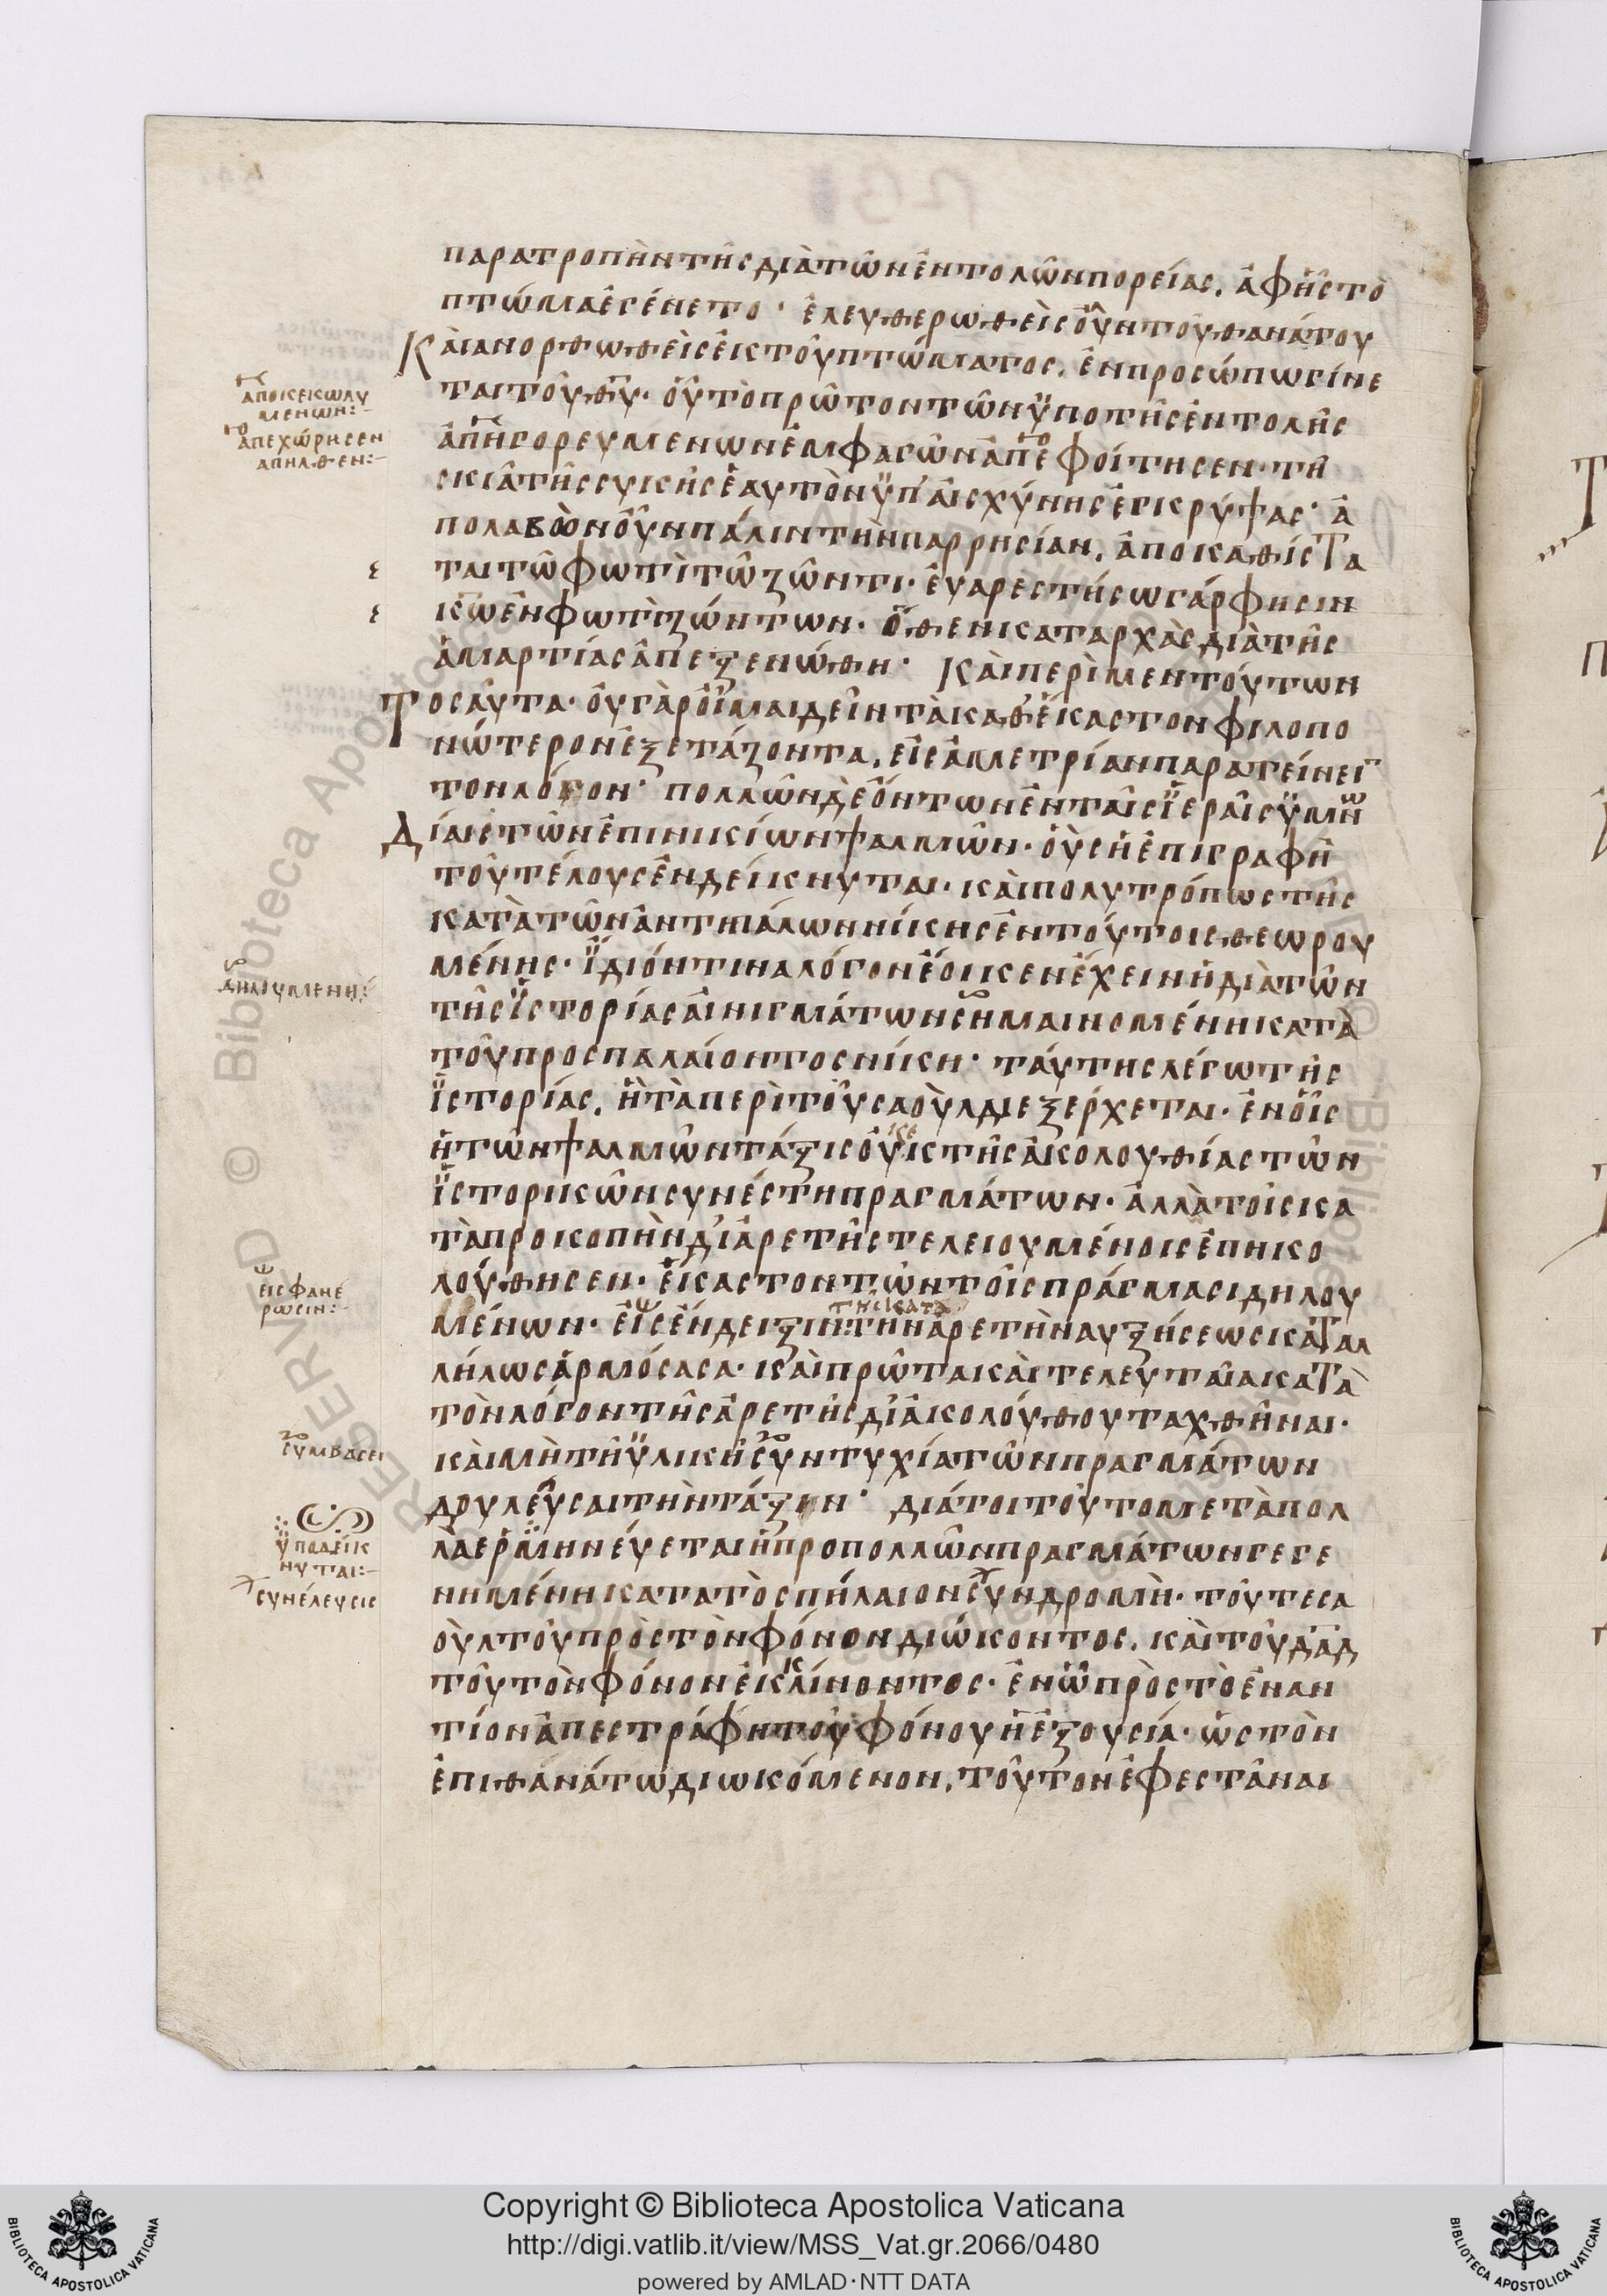 παρατροπὴντῆςδιὰτῶνἐντολῶνπορείας. ἀφῆςτὸ
πτώμαἐγένετο· ἐλευθερωθεὶςοὖντοῦθανάτου
Κὰιανορθωθεὶςἐκτοῦπτώματος. ἐνπροςώπωγίνε
ταιτοῦθυ· οὗτοπρῶτοντῶνϋποτῆςἐντολῆς
ἀπηγορευμενωνἐμφαγῶνἀπεφοίτηςεν· τῆ
ςκιᾶτῆςςυκῆςἑαυτὸνϋπ'αἰςχύνηςἐγκρύψας· ἀ
πολαβὼνοὖνπάλιντὴνπαρρηςίαν. ἀποκαθίςτα
ταιτῶφωτὶτῶζῶντι· ἐυαρεςτήςωγάρφηςιν
κωἐνφωτὶζώντων· ὅθενκαταρχὰςδιὰτῆς
ἁμαρτίαςἀπεξενώθη· Κὰιπερὶμεντούτων
Τοςαῦτα· οὐγὰροἶμαιδεῖντὰκαθ'ἕκαςτονφιλοπο
νώτερονἐξετάζοντα, εἰςἀμετρίανπαρατείνει
τονλόγον· πολλῶνδὲὄντωνἐνταῖςϊεραῖςϋμν
Δίαιςτῶνἐπινικίωνψαλμῶν· οὑςἡἐπιγραφὴ
τοῦτέλουςἐνδείκνυται· κὰιπολυτρόπωςτῆς
κατὰτῶνἀντιπάλωννίκηςἐντούτοιςθεωρου
μένης· ϊδιόντιναλόγονἔοικενἔχεινἡδιὰτῶν
τῆςϊςτορίαςαἰνιγμάτωνςημαινομένηκατὰ
τοῦπροςπαλαίοντοςνίκη· ταύτηςλέγωτῆς
ϊςτορίας, ἣτὰπερὶτοῦςαοὺλδιεξέρχεται· ἐνοἷς
ἡτῶνψαλμῶντάξιςοὐκτῆςἀκολουθίαςτῶν
κε
ϊςτορικῶνςυνέςτηπραγμάτων· ἀλλὰτοῖςκα
τὰπροκοπὴνδι'ἀρετῆςτελειουμένοιςἐπηκο
λούθηςεν· ἕκαςτοντῶντοῖςπράγμαςιδηλου
τῆςκατα
μένων· εἰςἔνδειξιντὴνἀρετὴναυξήςεωςκαταλ
λήλωςἁρμόςαςα· κὰιπρῶτακὰιτελευταῖακατὰ
τὸνλόγοντῆςἀρετῆςδι'ἀκολούθουταχθῆναι·
κὰιμὴτῆϋλικῆςυντυχίατῶνπραγμάτων
δουλεῦςαιτὴντάξιν· διάτοιτοῦτομετὰπολ
λὰερμηνέυεταιἡπροπολλῶνπραγμάτωνγεγε
νημένηκατατὸςπήλαιονςυνδρομὴ· τοῦτεςα
οὺλτοῦπρὸςτὸνφόνονδιώκοντος. κὰιτοῦδαδ
τοῦτὸνφόνονἐκκλίνοντος· ἐνὧπρὸςτὸἐναν
τίονἀπεςτράφητοῦφόνουἡἐξουςία· ὡςτὸν
ἐπιθανάτωδιωκόμενον, τοῦτονἐφεςτᾶναι
ἀποκεκωλυ
μενων:-
ἀπεχώρηςεν
απηλθεν:-
δηλουμενη:
εἰςφανέ
ρωςιν:-
ςυμβάςει
ϋποδείκ
νυται:-
ςυνέλευςις
Copyright © Biblioteca Apostolica Vaticana
http://digi.vatlib.it/view/MSS_Vat.gr.2066/0480
powered by AMLAD·NTT DATA